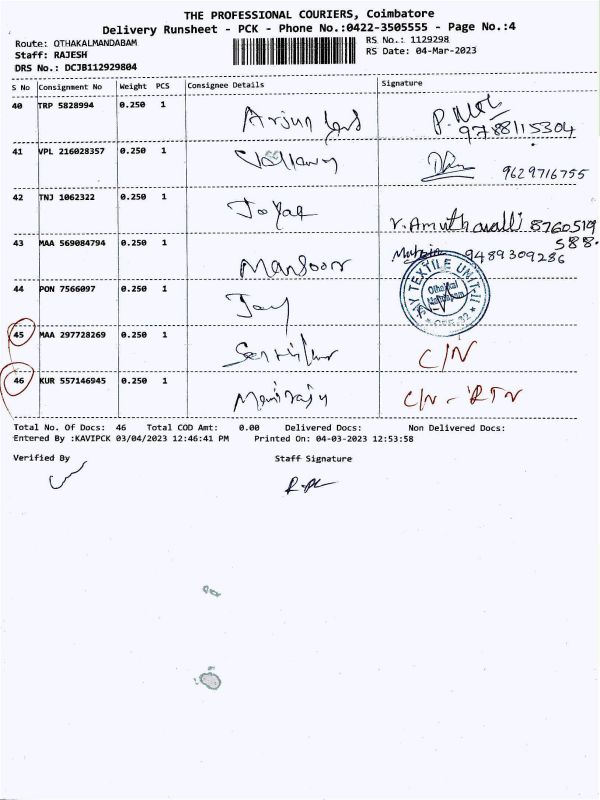 THE PROFESSIONAL COURIERS, Coimbatore
Delivery Runsheet - PCK - Phone No.:0422-3505555 - Page No.:4
Route: OTHAKALMANDABAM
RS No.: 1129298
Staff: RAJESH
RS Date: 04-Mar-2023
DRS No.: DCJB112929804
S No Consignment No Weight PCS Consignee Details Signature
40 TRP 5828994 0.250 1 Arjun
9788115304
41 VPL 216028357 0.250 1
9629716755
42 TNJ 1062322 0.250 1
V. Amuthavalli 8760519
588.
43 MAA 569084794 0.250 1 Mansoor
9489309286
44 PON 7566097 0.250 1 Jay
TEXTILE UNIT-II
45 MAA 297728269 0.250 1 C/N
46 KUR 557146945 0.250 1 C/N - RTN
Total No. Of Docs: 46 Total COD Amt: 0.00 Delivered Docs: Non Delivered Docs:
Entered By :KAVIPCK 03/04/2023 12:46:41 PM Printed On: 04-03-2023 12:53:58
Verified By Staff Signature